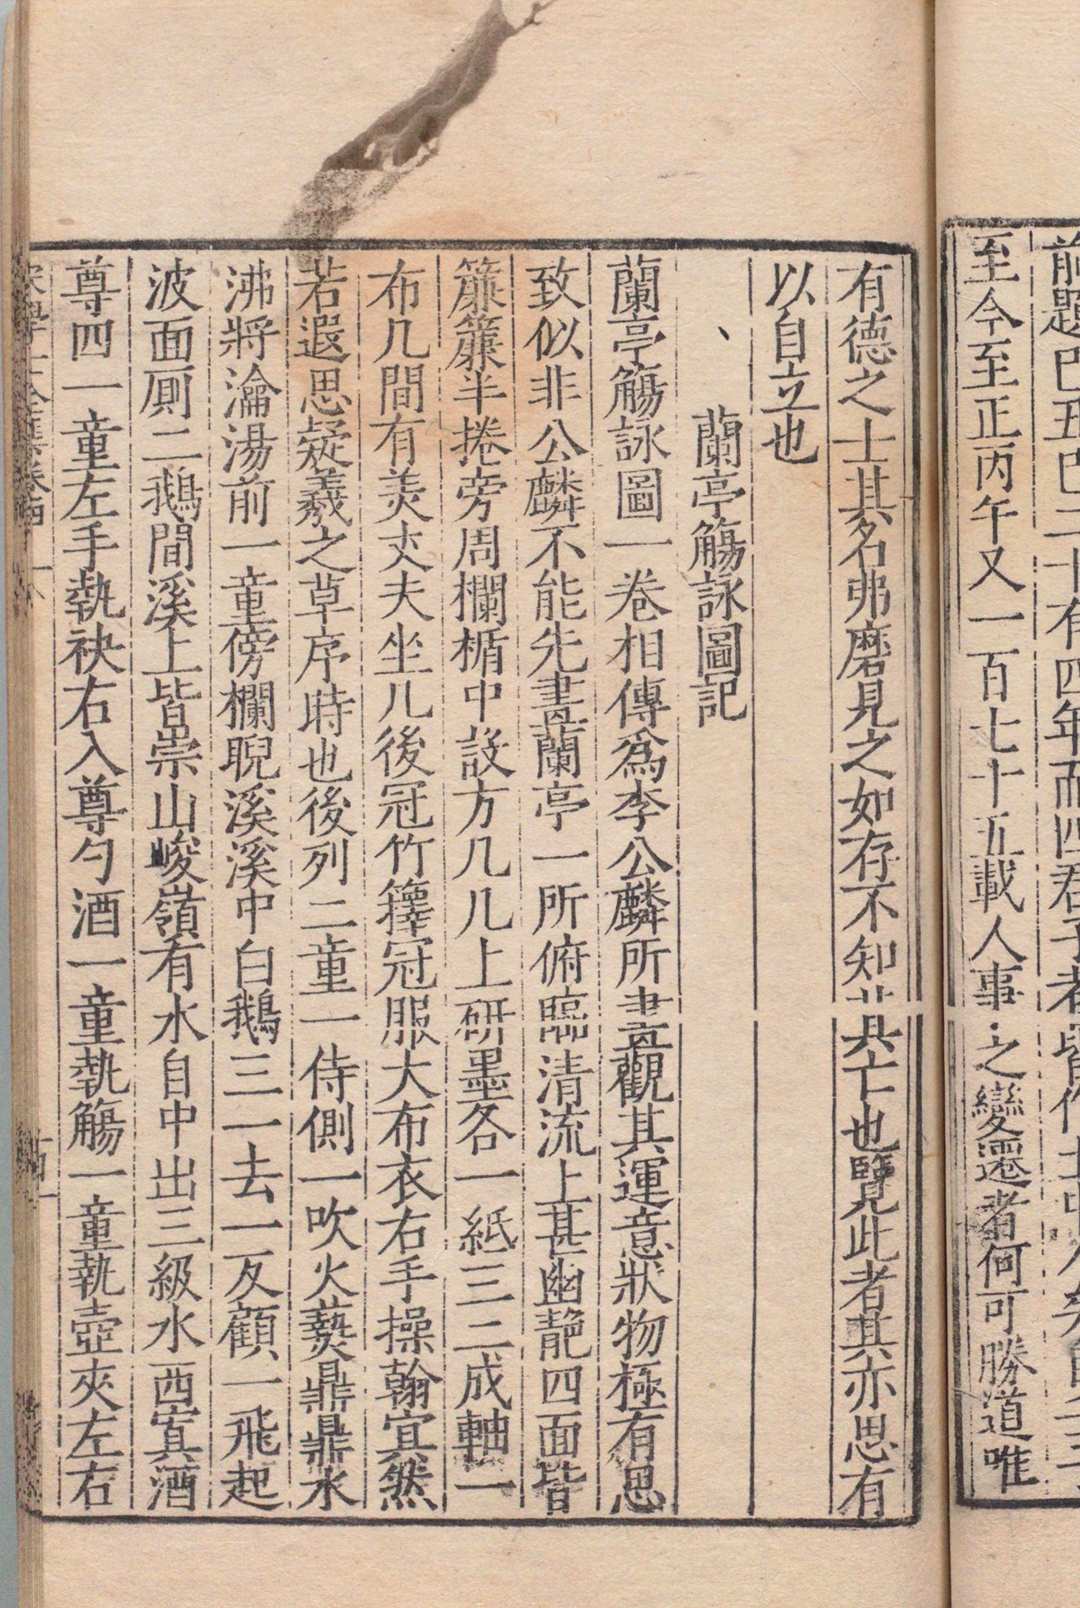 前題已五巳二十有四年而四君子者皆作
至今至正丙午又一百七十五載人事之變遷者何可勝道唯
有德之士其名弗磨見之如存不知其亡也覽此者其亦思有
以自立也
、蘭亭觴詠圖記
蘭亭觴詠圖一卷相傳爲李公麟所畫觀其運意狀物極有思
致似非公麟不能先畫蘭亭一所俯臨清流上甚幽靘四面皆
簾簾半捲旁周欄楯中設方几几上研墨各一紙三二成軸一
布几間有美丈夫坐几後冠竹籜冠服大布衣右手操翰寘然
若遐思疑羲之草序時也後列二童一侍側一吹火爇鼎鼎水
沸將瀹湯前一童傍欄睨溪溪中白鵝三一去一反顧一飛起
波面厠二鵝間溪上皆崇山峻嶺有水自中出三級水西寘酒
尊四一童左手執袂右入尊勺酒一童執觴一童執壺夾左右